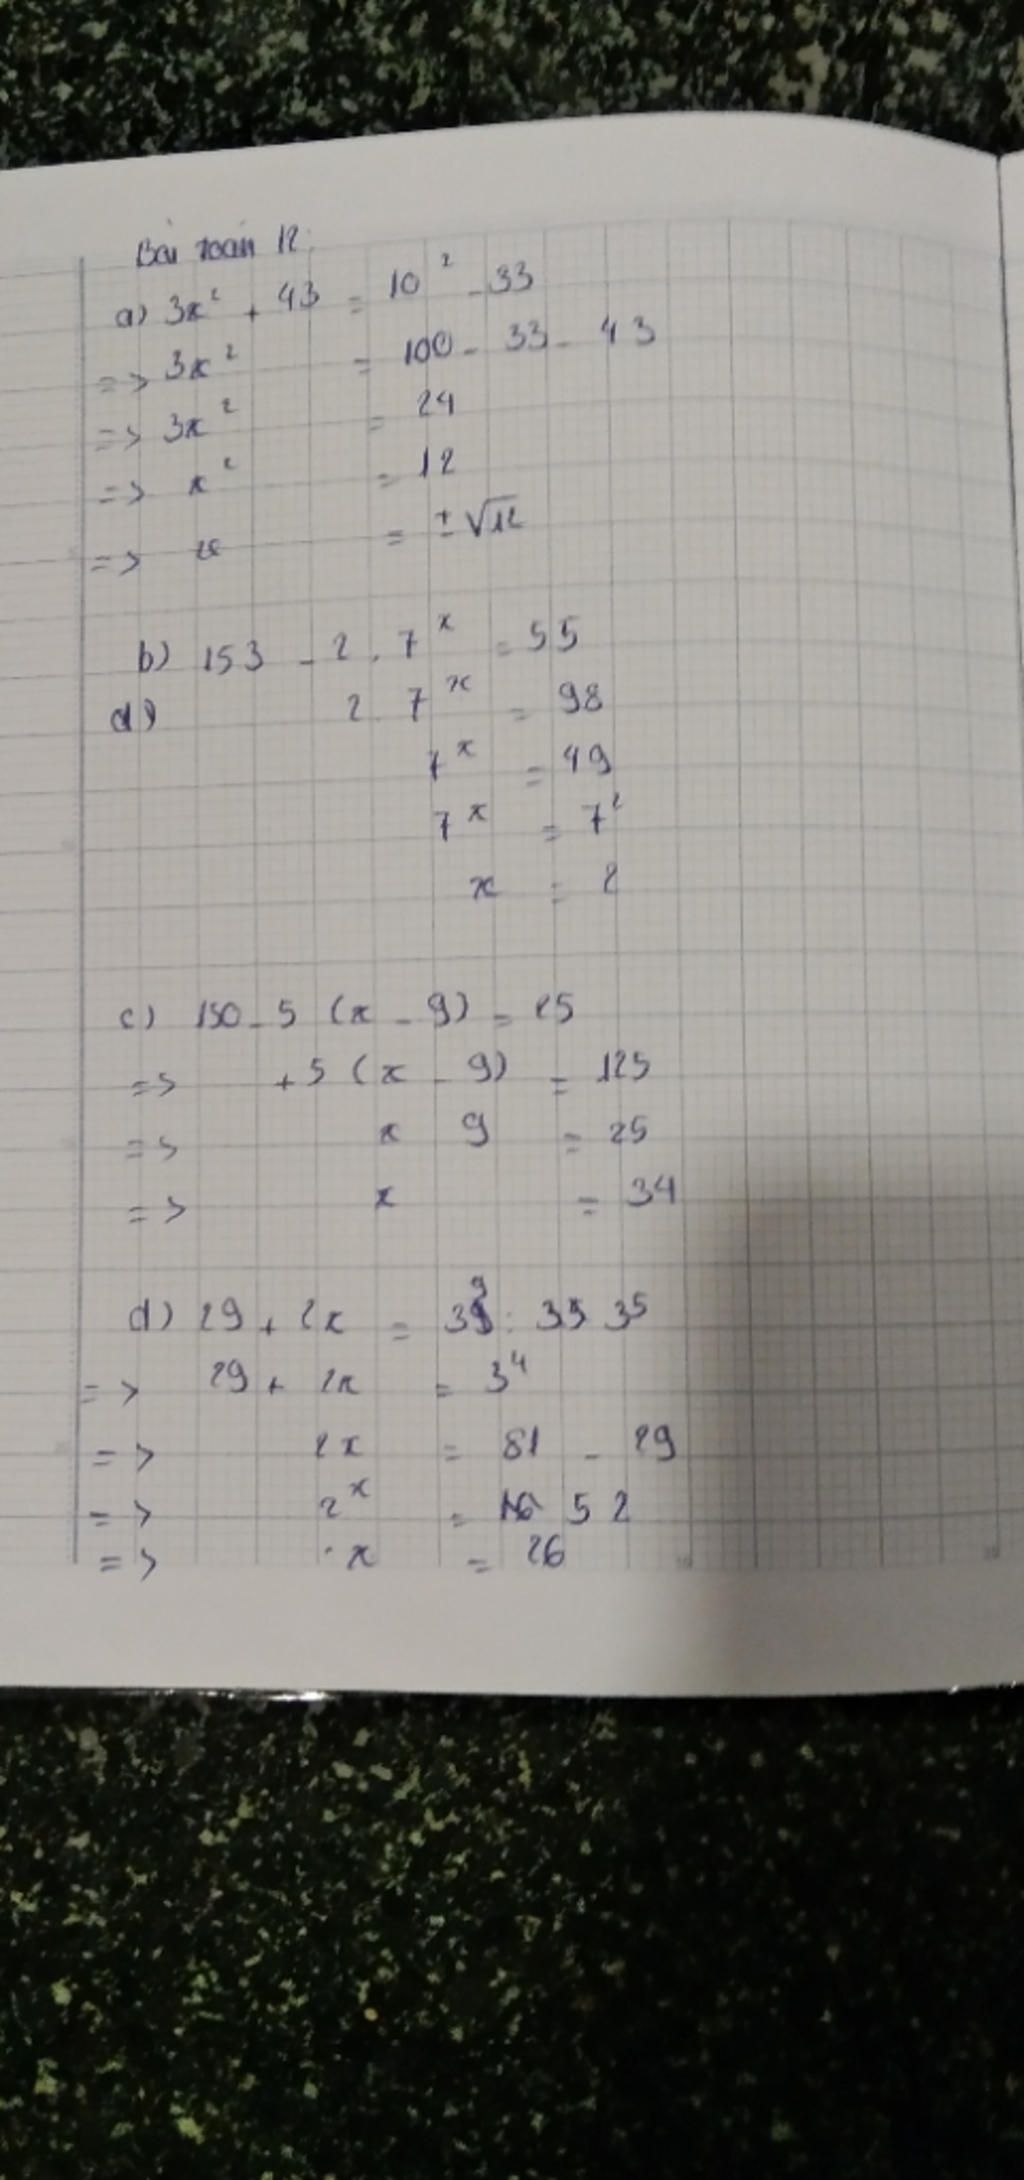 Bài toán 12:
a) 3x² + 43 = 10² - 33
=> 3x² = 100 - 33 - 43
=> 3x² = 24
=> x² = 12
=> x = ±√12
b) 153 - 2 . 7ˣ = 55
d)
2 . 7ˣ = 98
7ˣ = 49
7ˣ = 7²
x = 2
c) 150 - 5 (x - 9) = 25
=> +5 (x - 9) = 125
=> x 9 = 25
=> x = 34
d) 29 + 2x = 3⁹ : 35 3⁵
=> 29 + 2x = 3⁴
=> 2x = 81 - 29
=> 2ˣ = 52
=> x = 26